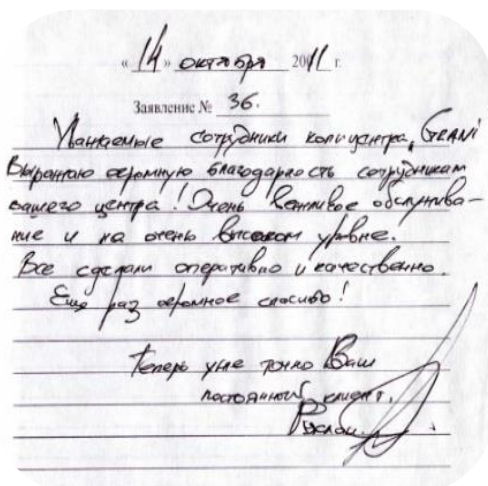 « 14 » октября 2011 г.
Заявление № 36.
Уважаемые сотрудники копицентра, GRANI
Выражаю огромную благодарность сотрудникам
вашего центра! Очень вежливое обслужива-
ние и на очень высоком уровне.
Все сделали оперативно и качественно.
Еще раз огромное спасибо!
Теперь уже точно Ваш
постоянный клиент.
Руслан.